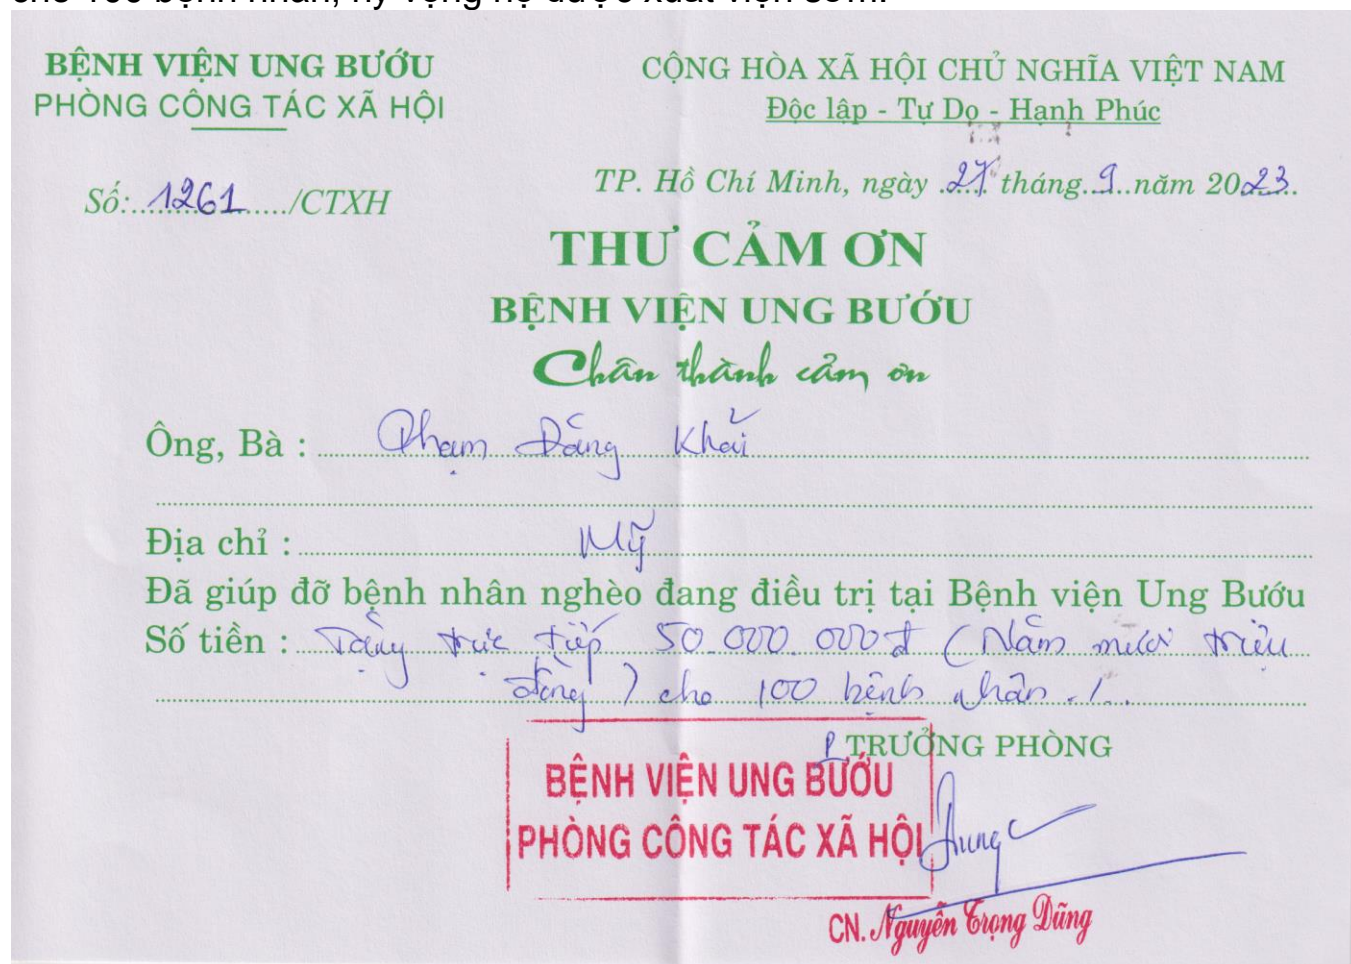 cho 100 bệnh nhân, hy vọng họ được xuất viện sớm.
BỆNH VIỆN UNG BƯỚU
PHÒNG CÔNG TÁC XÃ HỘI
CỘNG HÒA XÃ HỘI CHỦ NGHĨA VIỆT NAM
Độc lập - Tự Do - Hạnh Phúc
Số: 1261 /CTXH
TP. Hồ Chí Minh, ngày 27 tháng 9 năm 2023
THƯ CẢM ƠN
BỆNH VIỆN UNG BƯỚU
Chân thành cảm ơn
Ông, Bà : Phạm Đăng Khải
Địa chỉ : Mỹ
Đã giúp đỡ bệnh nhân nghèo đang điều trị tại Bệnh viện Ung Bướu
Số tiền : Tặng trực tiếp 50.000.000đ (Năm mươi triệu
đồng) cho 100 bệnh nhân ./.
P TRƯỞNG PHÒNG
BỆNH VIỆN UNG BƯỚU
PHÒNG CÔNG TÁC XÃ HỘI
CN. Nguyễn Trọng Dũng